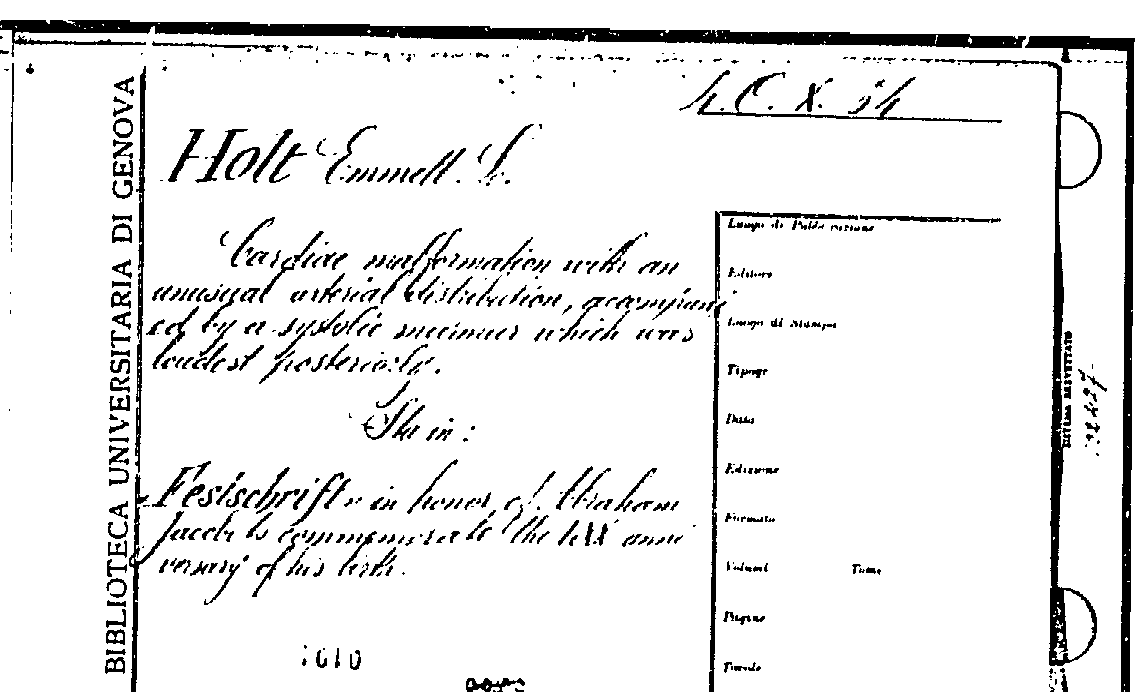 BIBLIOTECA UNIVERSITARIA DI GENOVA
Holt Emmett. L.
Cardiac malformation with an
unusual arterial distribution, accompani
ed by a systolic murmur which was
loudest posteriorly.
Sta in:
Festschrift in honor of Abraham
Jacobi to commemorate the LXX anni
versary of his birth.
Luogo di Pubblicazione
Editore
Luogo di Stampa
Tipogr
Data
Edizione
Formato
Volumi Tomo
Pagine
Tavole
1010